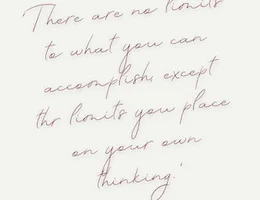 There are no limits
to what you can
accomplish, except
the limits you place
on your own
thinking.'